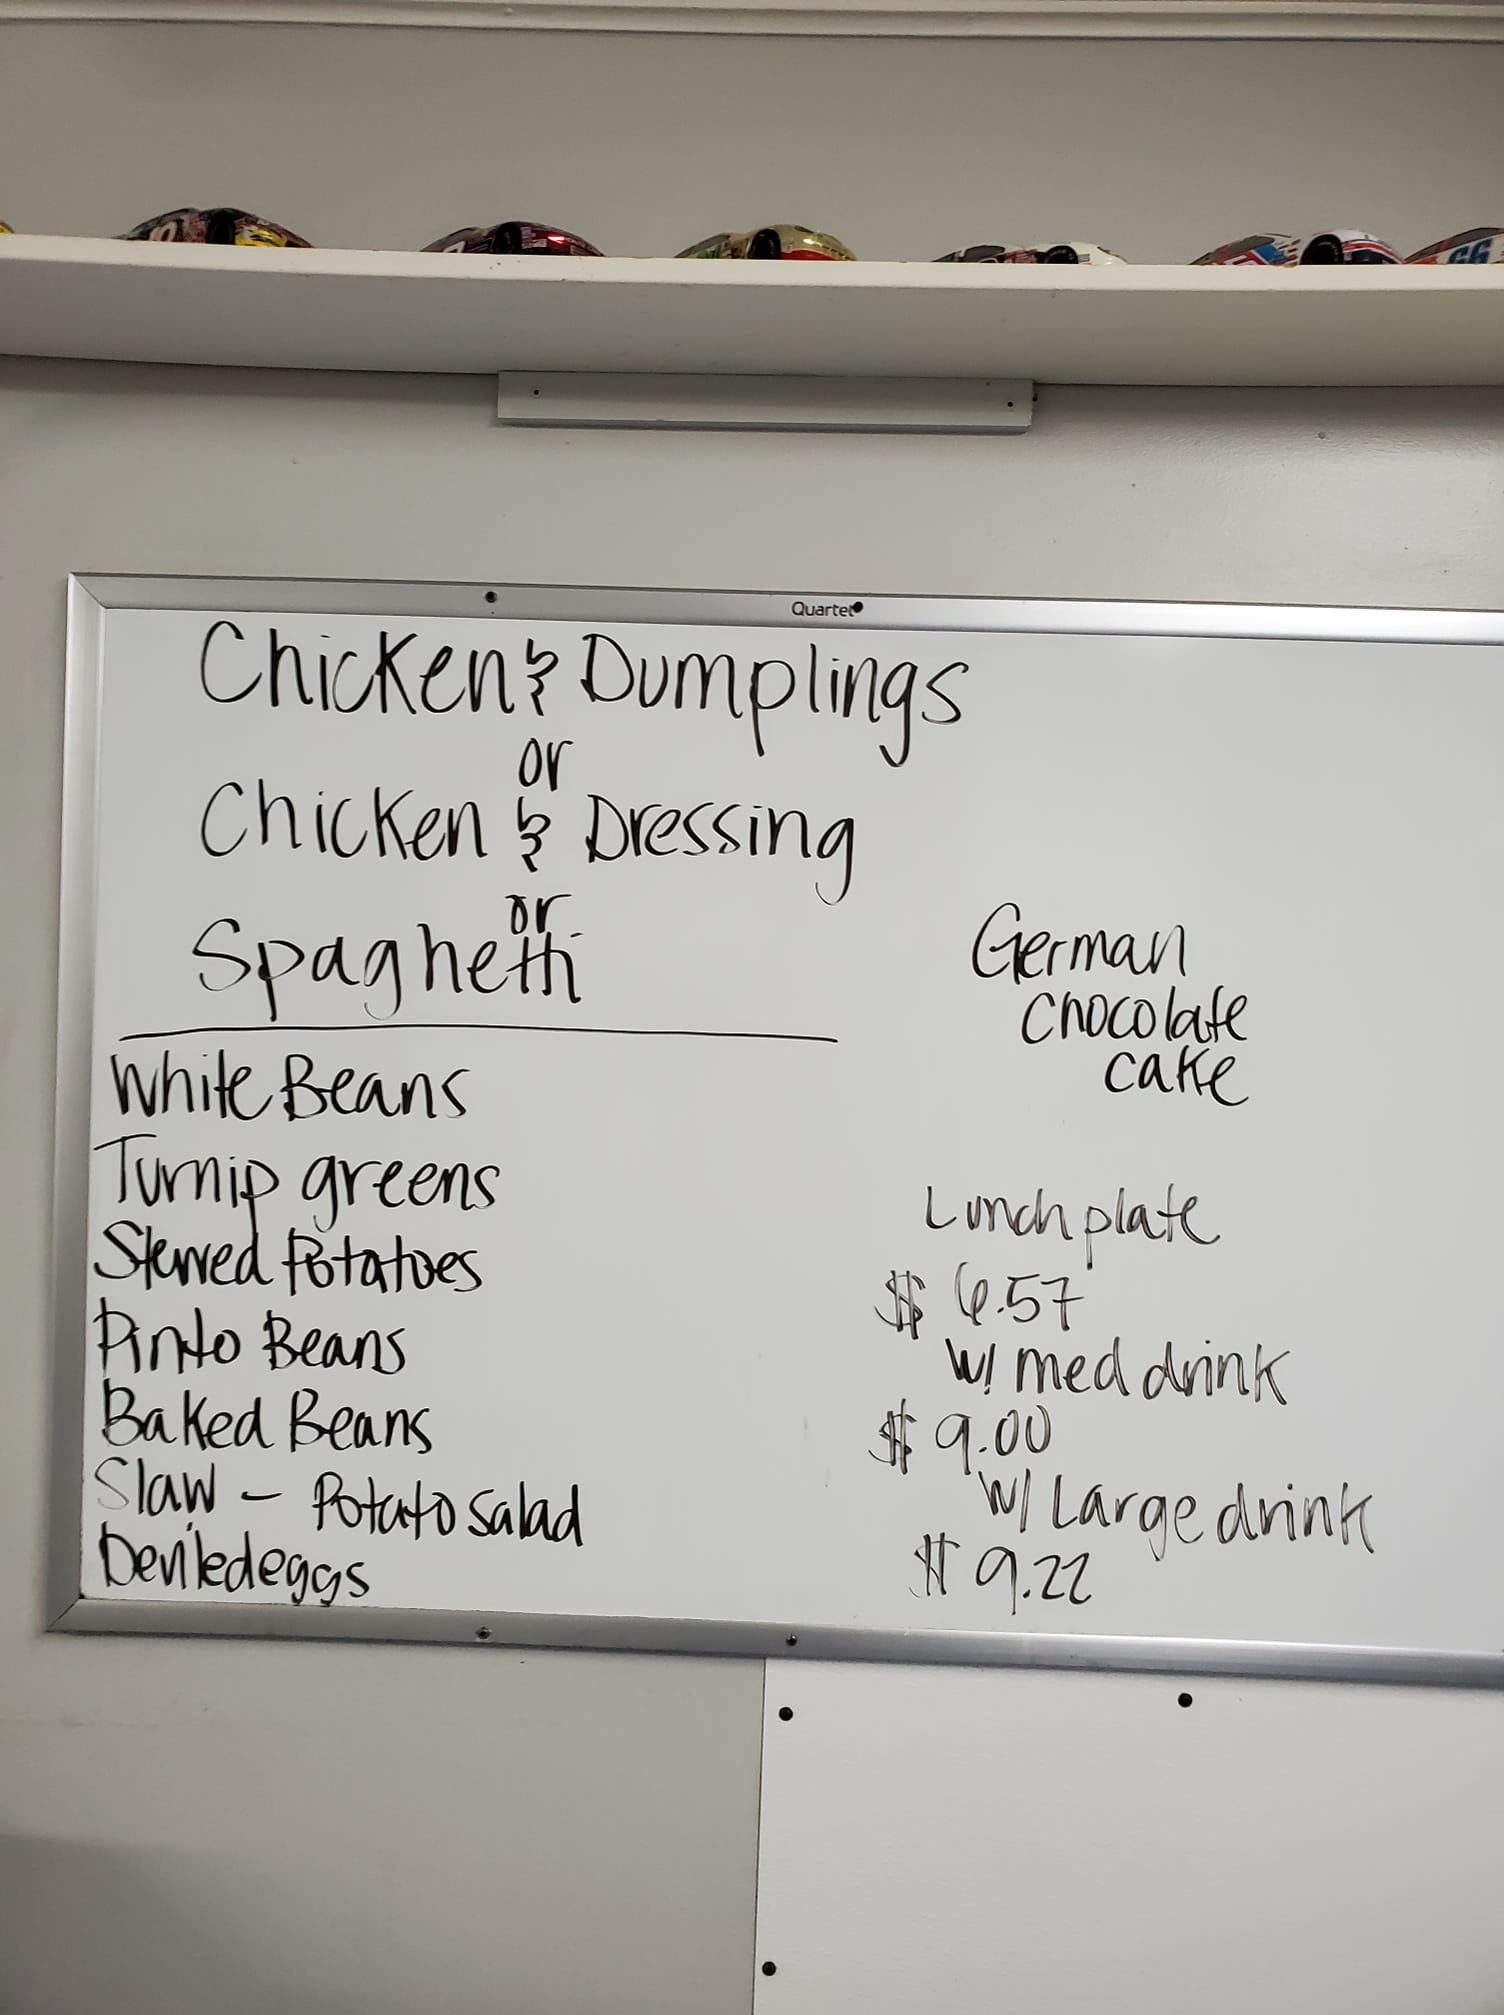 Quartet
Chicken & Dumplings
or
Chicken & Dressing
or
Spaghetti
White Beans
Turnip greens
Stewed Potatoes
Pinto Beans
Baked Beans
Slaw - Potato salad
Deviled eggs
German
Chocolate
cake
Lunch plate
$ 6.57
w/ med drink
$ 9.00
w/ Large drink
$ 9.22
66